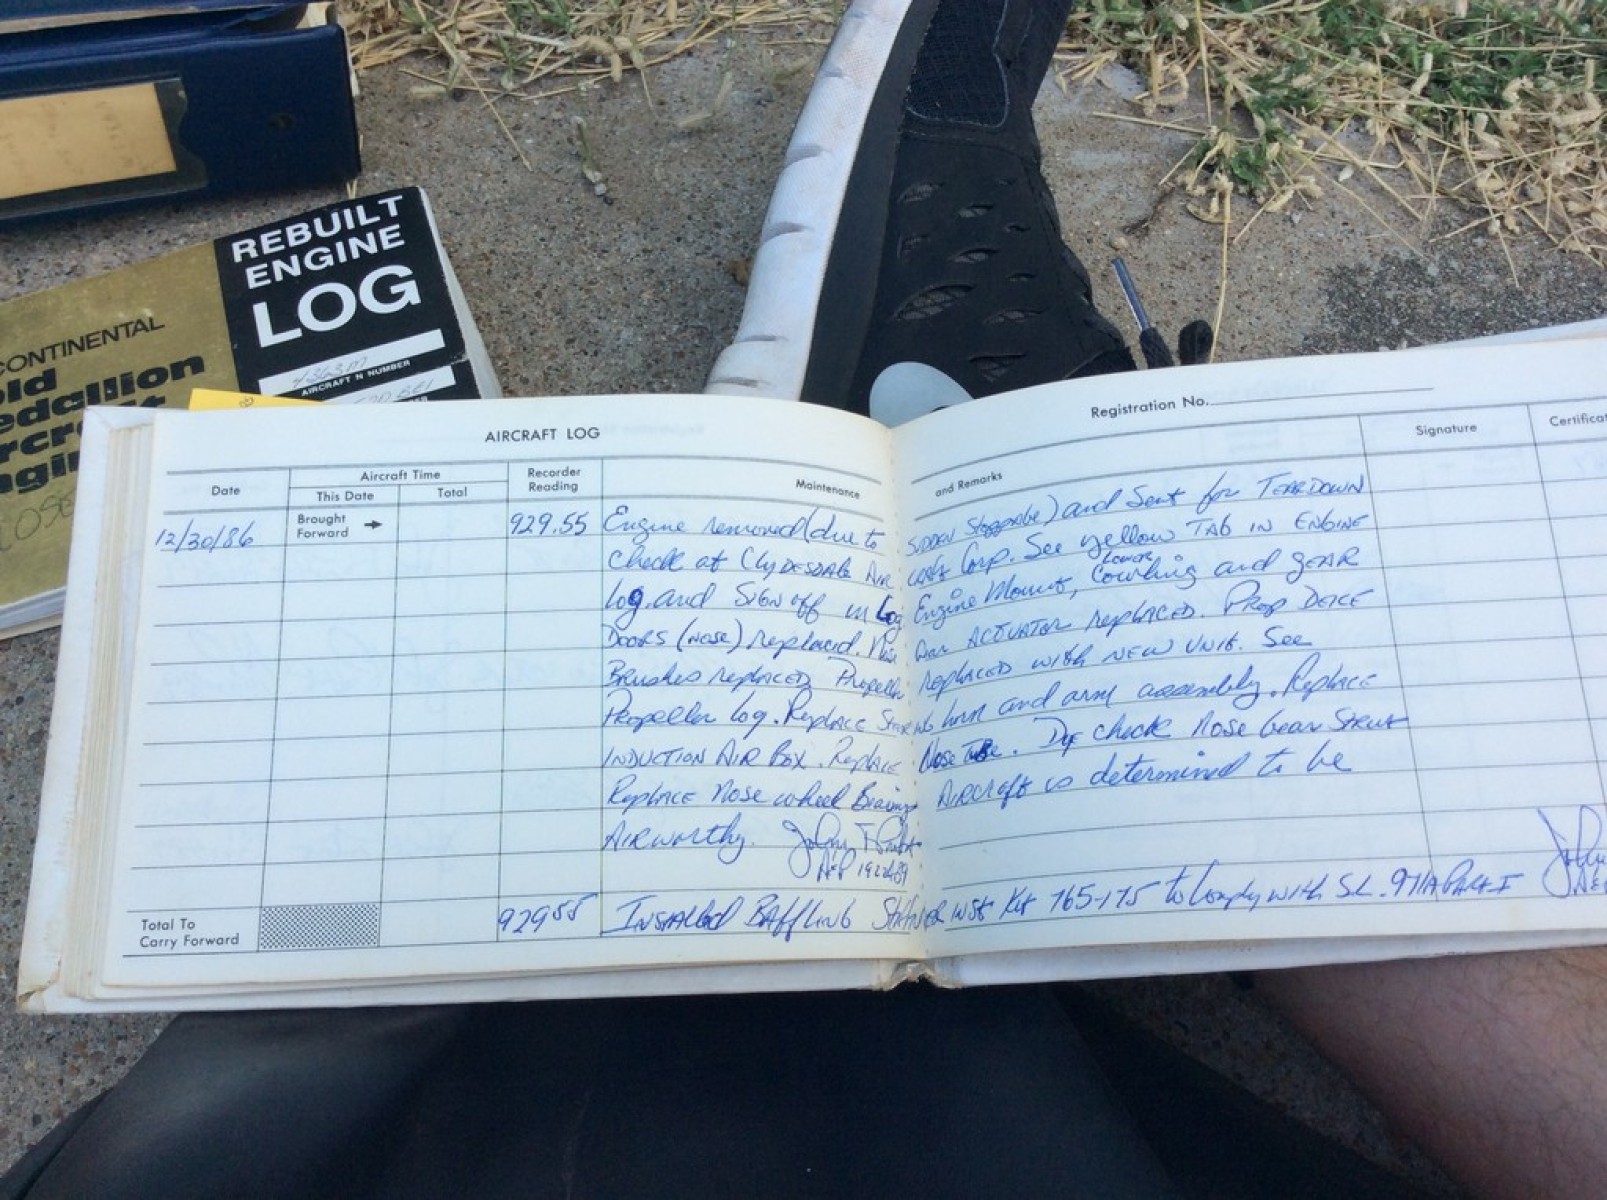 REBUILT
ENGINE
LOG
AIRCRAFT N NUMBER
CONTINENTAL
AIRCRAFT LOG
Registration No.
Date
Aircraft Time
This Date
Total
Recorder
Reading
Maintenance
and Remarks
Signature
Certificat
12/30/86
Brought
Forward
929.55
Engine removed (due to SUDDEN Stoppage) and Sent for TEARDOWN
Check at CLYDESDALE AIR Corp. See yellow TAG IN ENGINE
Log. and SIGN off in Log Engine Mount, LOWER Cowling and gEAR
DOORS (NOSE) replaced. Nose ACTUATOR replaced. Prop DEICE
Brushes replaced Propeller replaced with NEW UNIT. See
Propeller log. Replace horn and arm assembly. Replace
INDUCTION AIR BOX. Replace Nose Tube. Dye check Nose Gear Strut
Replace Nose wheel Bearings Aircraft is determined to be
AIRworthy. John
A&P
Total To
Carry Forward
92955
Installed BAffLING inst Kit 765-175 to Comply with S.L. 97/1A PART I